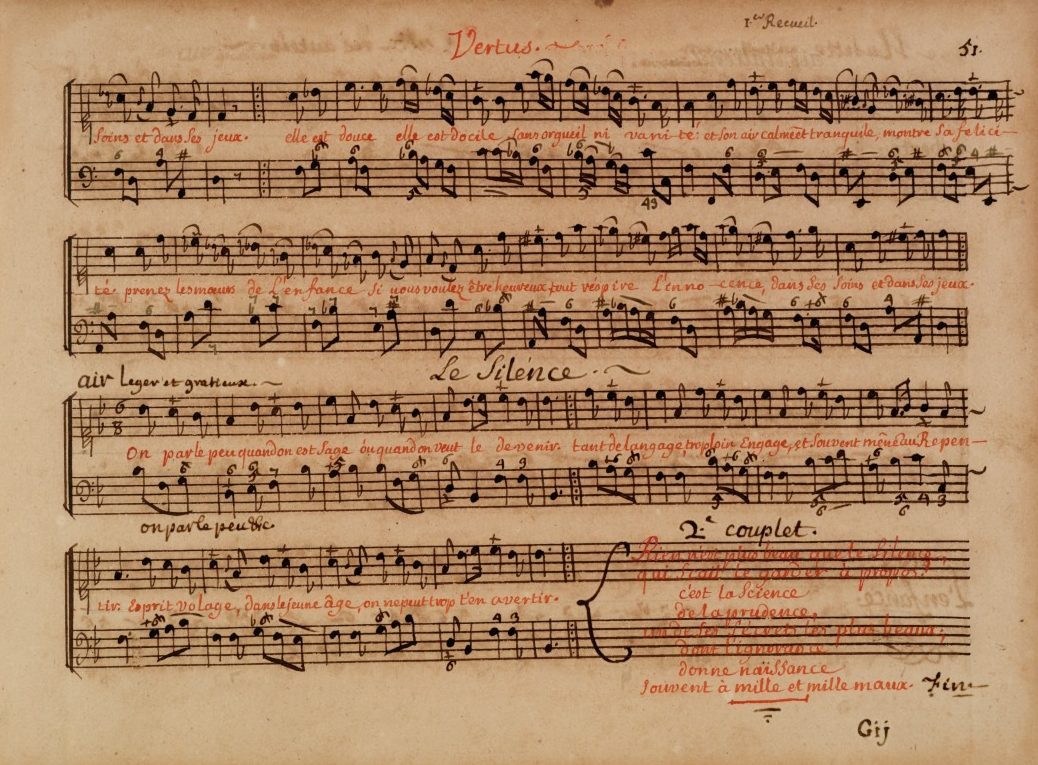 1.er Recueil.
Vertus.
51.
Soins et dans ses jeux. elle est douce elle est docile sans orgueil ni vanité: et son air calme et tranquile, montre sa felici-
té. prenez les mœurs de L'enfance si vous voulez être heureux, tout réspire L'innocence, dans ses soins et dans ses jeux.
air Leger et gratieux. Le Silénce.
On parle peu quand on est Sage ou quand on veut le devenir. tant de langage, trop loin Engage, et souvent même au Repen-
on parle peu &c 2.e couplet.
tir. Esprit volage, dans le jeune âge, on ne peut trop t'en avertir.
Rien n'est plus beau que le Silence,
qui sçait le garder à propos.
c'est la Science
de la prudence,
un de ses secrets les plus beaux,
dont l'ignorance
donne naissance
souvent à mille et mille maux. Fin
Gij